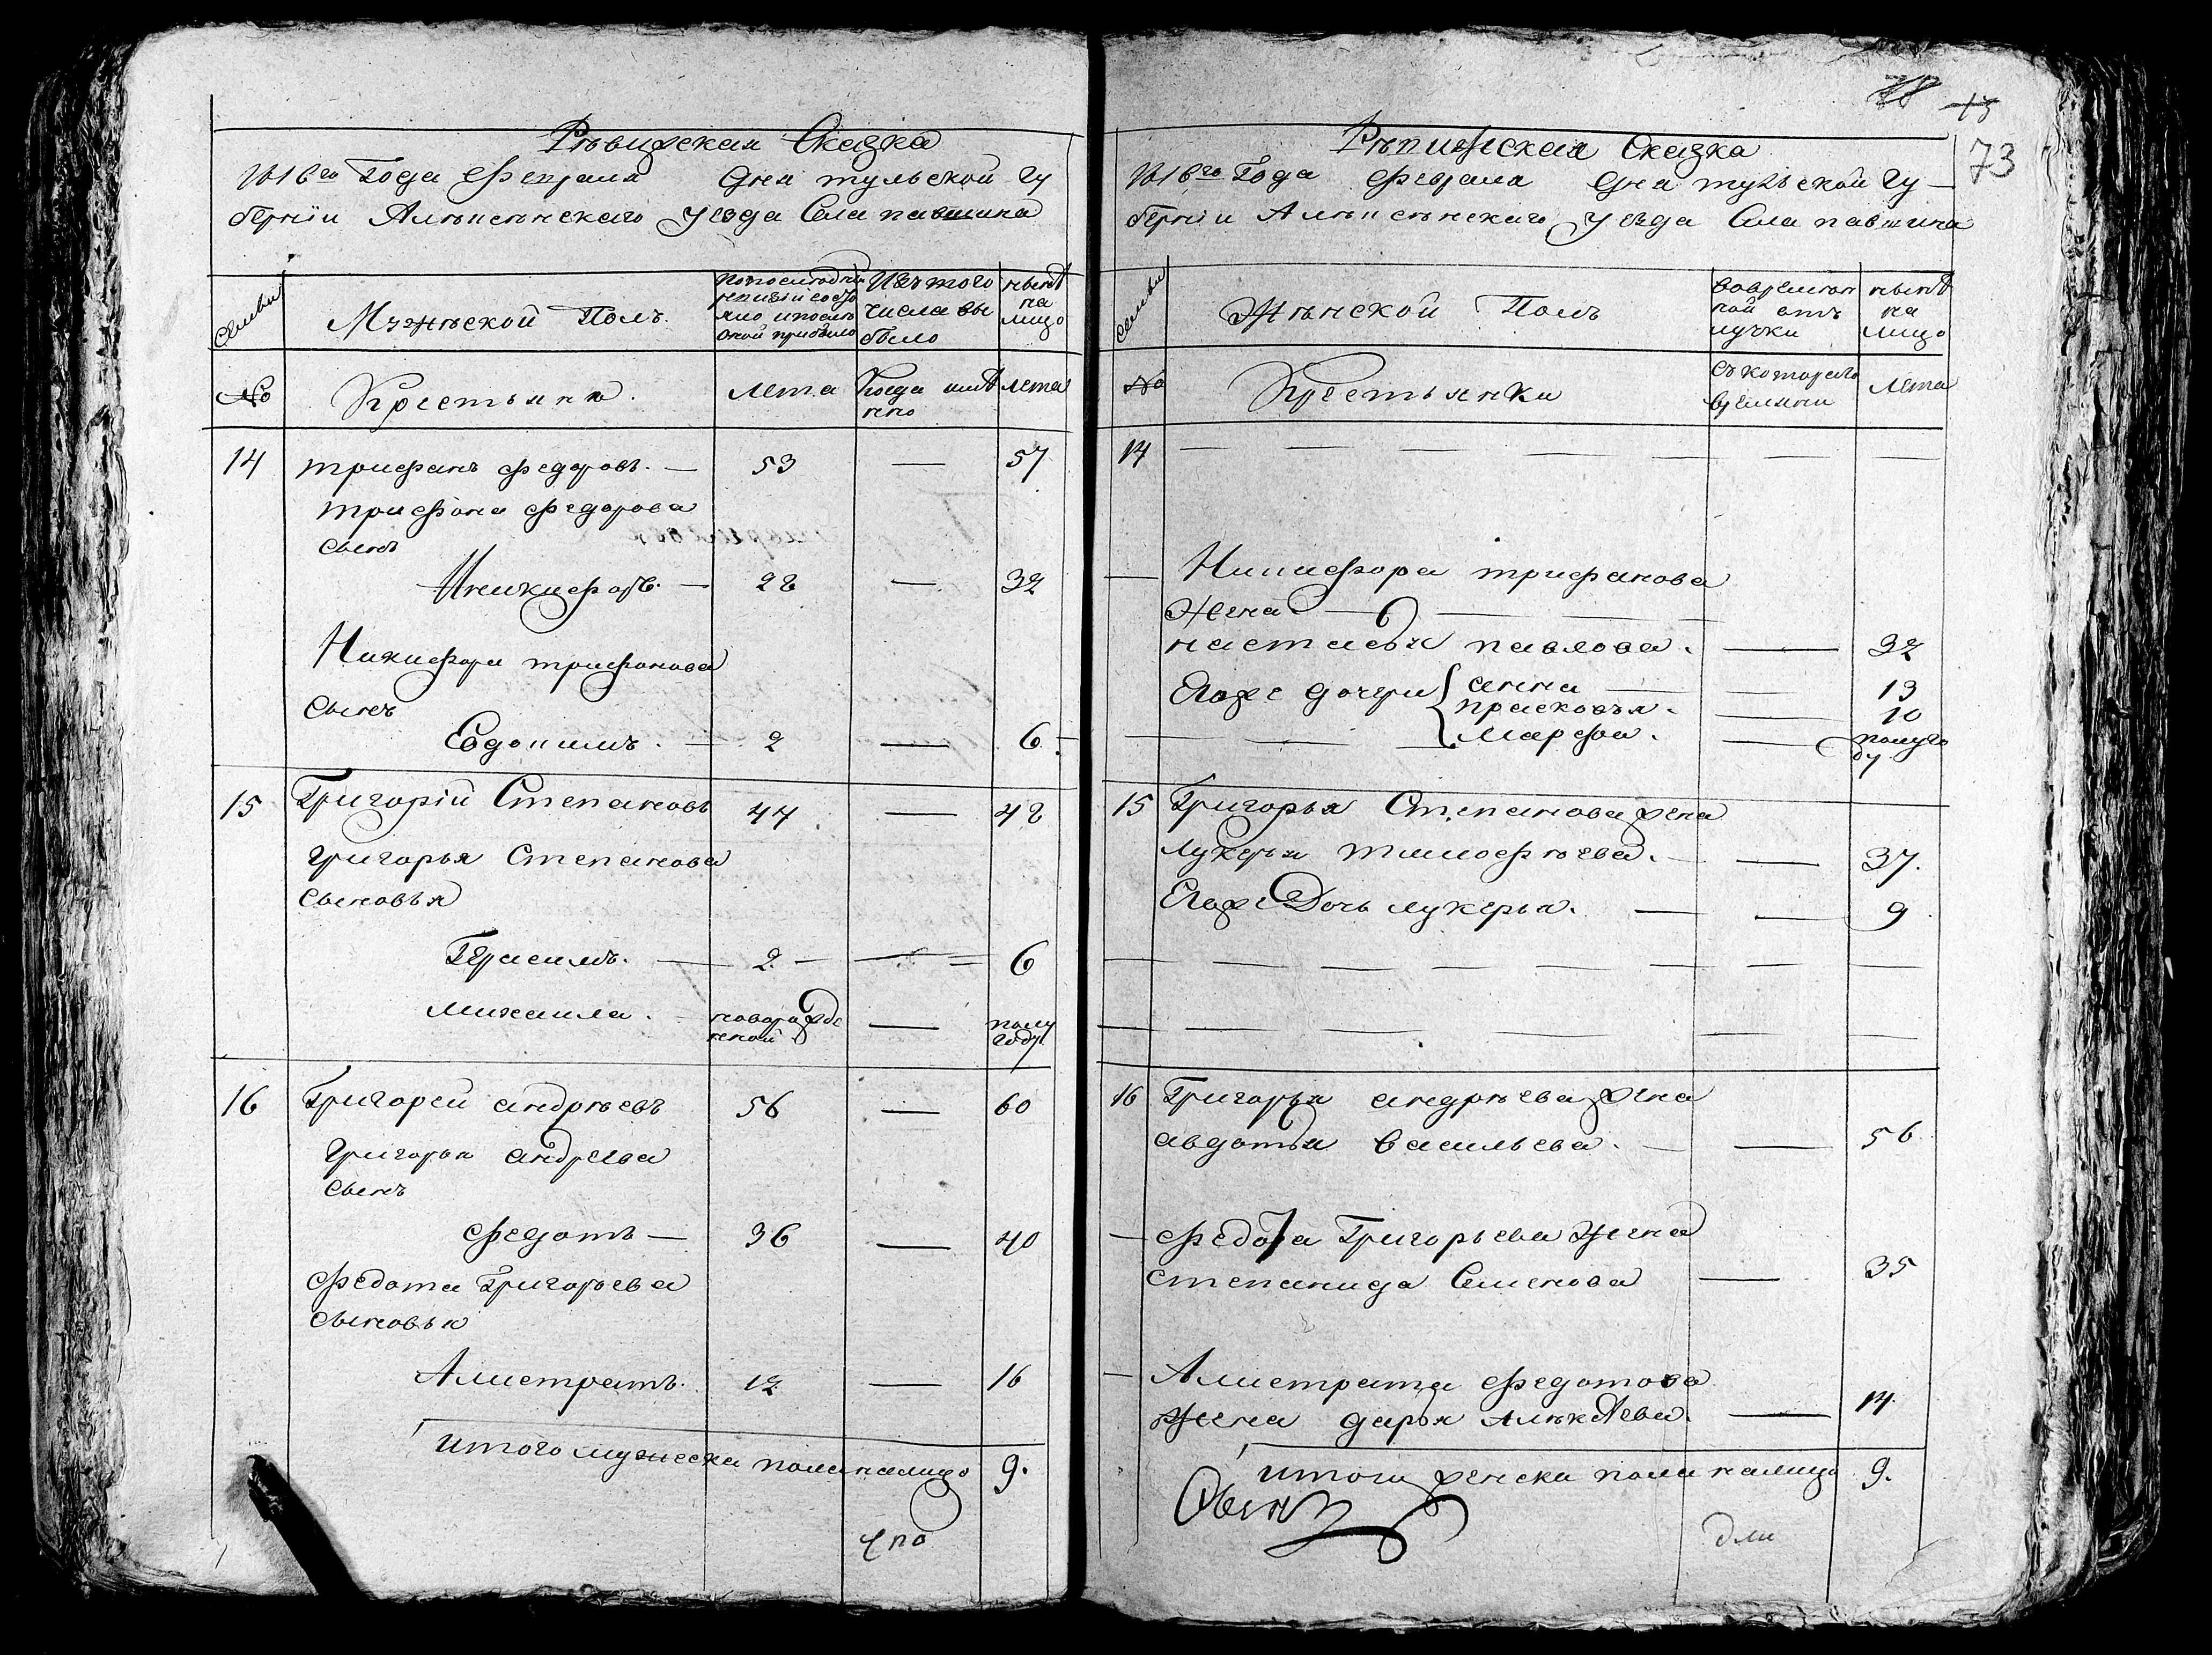 Ревизская Сказка
1816го Года Февраля Дня тульской гу
бернiи Алексенскаго Уезда Села павшина
Семьи
Мужеской Полъ
попоследней
ревизiи состо
яло и после
оной прибыло
Изътого
числа вы
было
нынѣ
на
лицо
№
Крестьяне.
лета
Когда имѣ
нно
лета
14 трифанъ федоровъ. — 53 — 57
трифона федорова
сынъ
Никифоръ. — 28 — 32
Никифора трифонова
сынъ
Евдокимъ. — 2 — 6.
15 Григорiй Степановъ 44 — 48
григорья Степанова
сыновья
Герасимъ. — 2. — — 6
михаила. — новорожде
нной — полу
году
16 Григорей андреевъ 56 — 60
григорья андреева
сынъ
федотъ — 36 — 40
федота Григорьева
сыновья
Алистратъ. 12 — 16
итого мужеска пола налицо 9.
78 73
73
Ревизская Сказка
1816го Года февраля Дня тульской гу—
бернiи Алексенскаго Уезда Села павшина
Семьи
Женской Полъ
вовремян
ной отъ
лучки
нынѣ
на
лицо
№
Крестьянки
съкотораго
времяни
лета
14 — — — — — — —
— Никифора трифанова
жена — — —
настасья павлова. — 32
Егоже дочери { анна — 13
прасковья. — 10
— — марфа. — полуго
ду
15 Григорья Степанова жена
лукерья тимофеева. — — 37.
Егоже Дочь лукерья. — — 9
— — — — — — — — —
— — — — — — — —
16 Григорья андреева жена
авдотья васильева. — — 56
— федота Григорьева жена
степанида Семенова — 35
— Алистрата федотова
жена дарья алексѣева. — 14.
итого женска пола налицо 9.